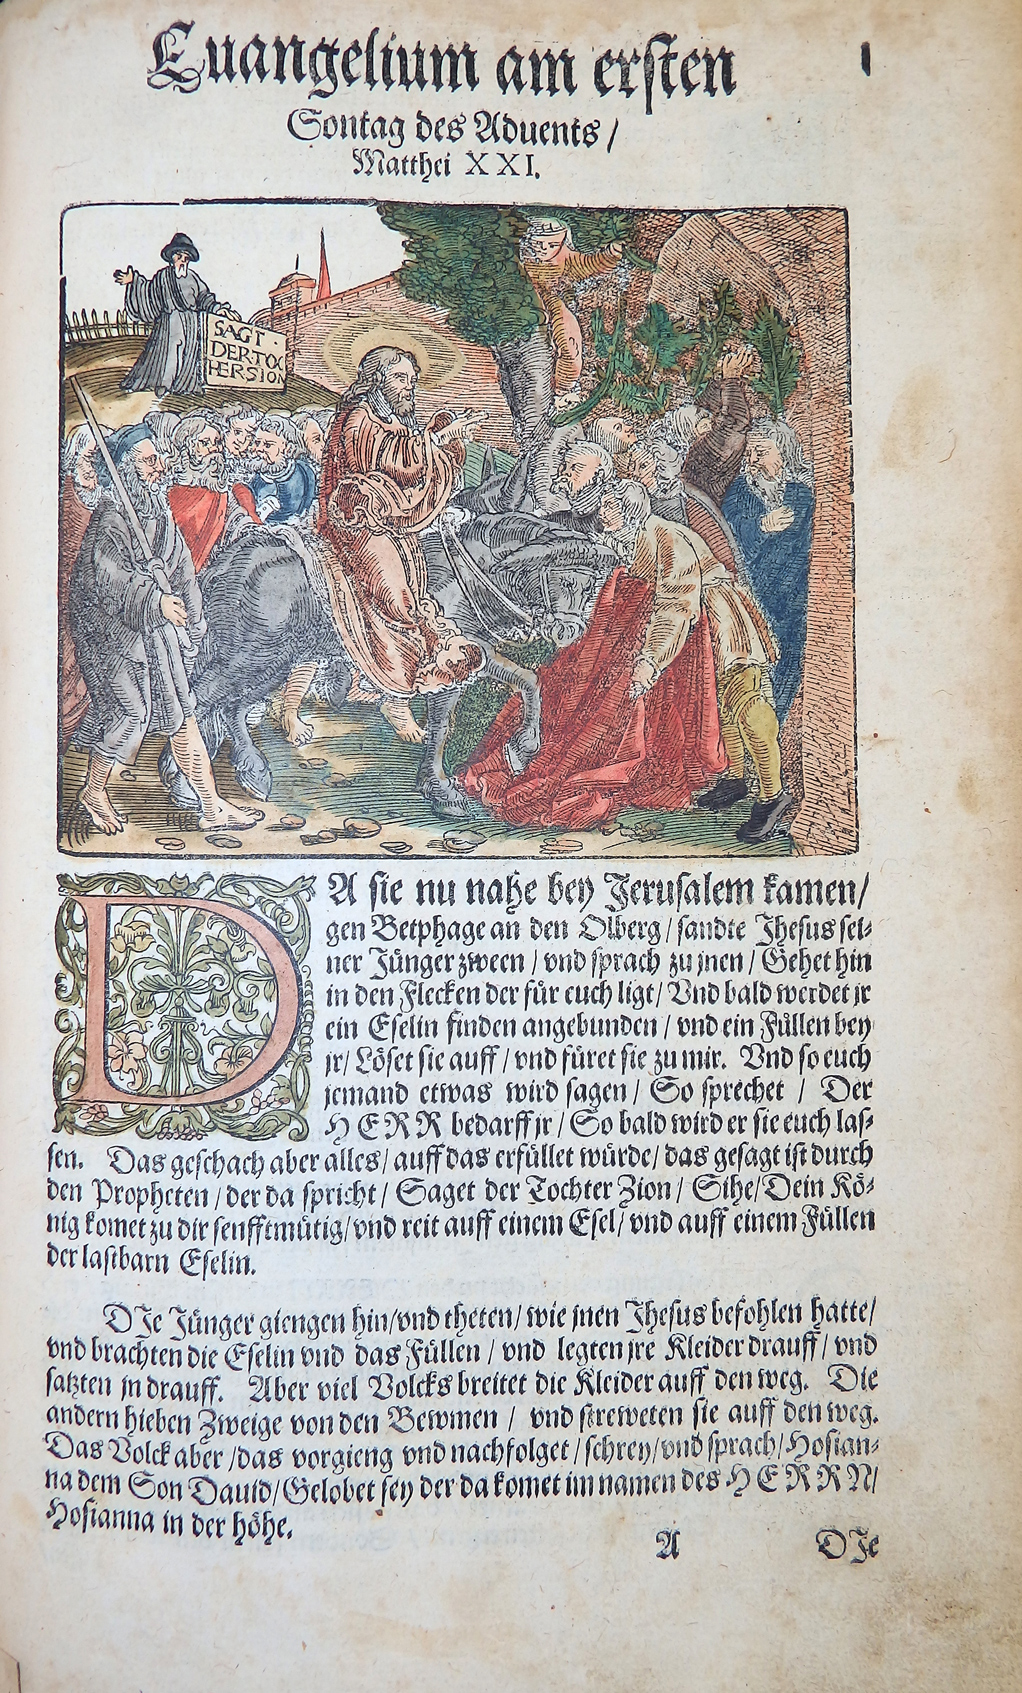 Euangelium am ersten
I
Sontag des Aduents /
Matthei XXI.
SAGT ·
DER TOC
HER SION
DA sie nu nahe bey Jerusalem kamen /
gen Betphage an den Olberg / sandte Jhesus sei-
ner Jünger zween / vnd sprach zu jnen / Gehet hin
in den Flecken der für euch ligt / Vnd bald werdet jr
ein Eselin finden angebunden / vnd ein Füllen bey
jr / Löset sie auff / vnd füret sie zu mir. Vnd so euch
jemand etwas wird sagen / So sprechet / Der
HERR bedarff jr / So bald wird er sie euch las-
sen. Das geschach aber alles / auff das erfüllet würde / das gesagt ist durch
den Propheten / der da spricht / Saget der Tochter Zion / Sihe / Dein Kö-
nig komet zu dir senfftmütig / vnd reit auff einem Esel / vnd auff einem Füllen
der lastbarn Eselin.
DJe Jünger giengen hin / vnd theten / wie jnen Jhesus befohlen hatte /
vnd brachten die Eselin vnd das Füllen / vnd legten jre Kleider drauff / vnd
satzten jn drauff. Aber viel Volcks breitet die Kleider auff den weg. Die
andern hieben Zweige von den Bewmen / vnd streweten sie auff den weg.
Das Volck aber / das vorgieng vnd nachfolget / schrey / vnd sprach / Hosian-
na dem Son Dauid / Gelobet sey der da komet im namen des HERRN /
Hosianna in der höhe.
A DJe